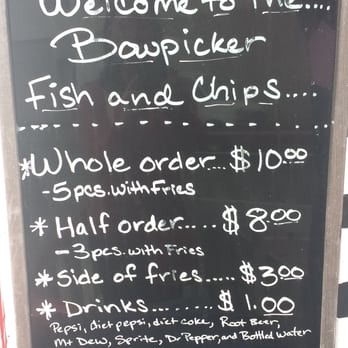 Welcome to The....
Bowpicker
Fish and Chips....
* Whole order... $10.00
- 5 pcs. with Fries
* Half order..... $8.00
- 3 pcs. with Fries
* Side of fries..... $3.00
* Drinks......... $1.00
Pepsi, diet pepsi, diet coke, Root Beer,
Mt Dew, Sprite, Dr. Pepper, and Bottled Water